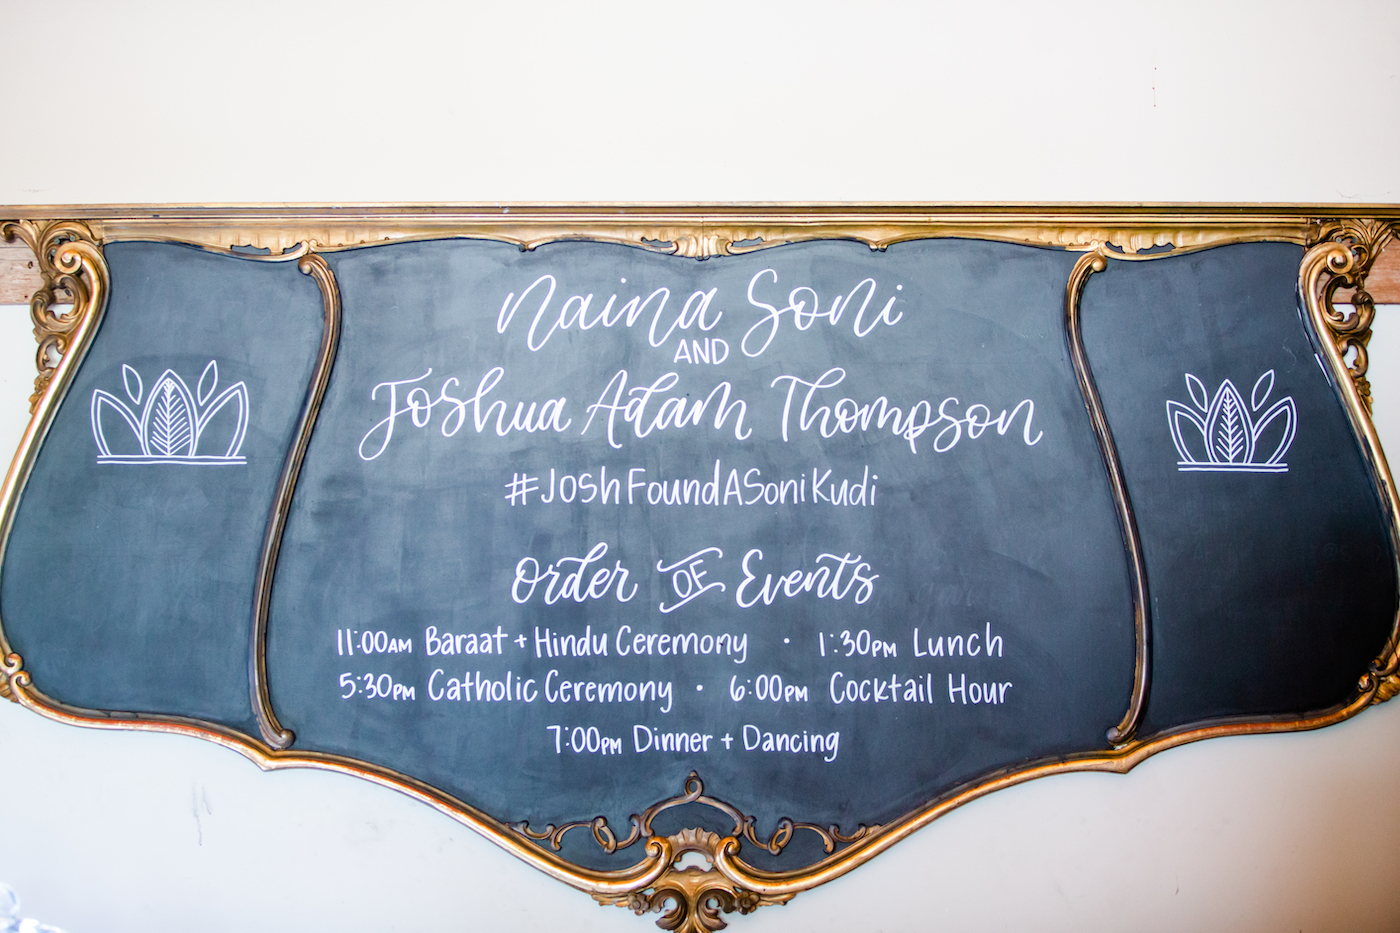 Naina Soni
AND
Joshua Adam Thompson
#JoshFoundASoniKudi
Order OF Events
11:00AM Baraat + Hindu Ceremony • 1:30PM Lunch
5:30PM Catholic Ceremony • 6:00PM Cocktail Hour
7:00PM Dinner + Dancing